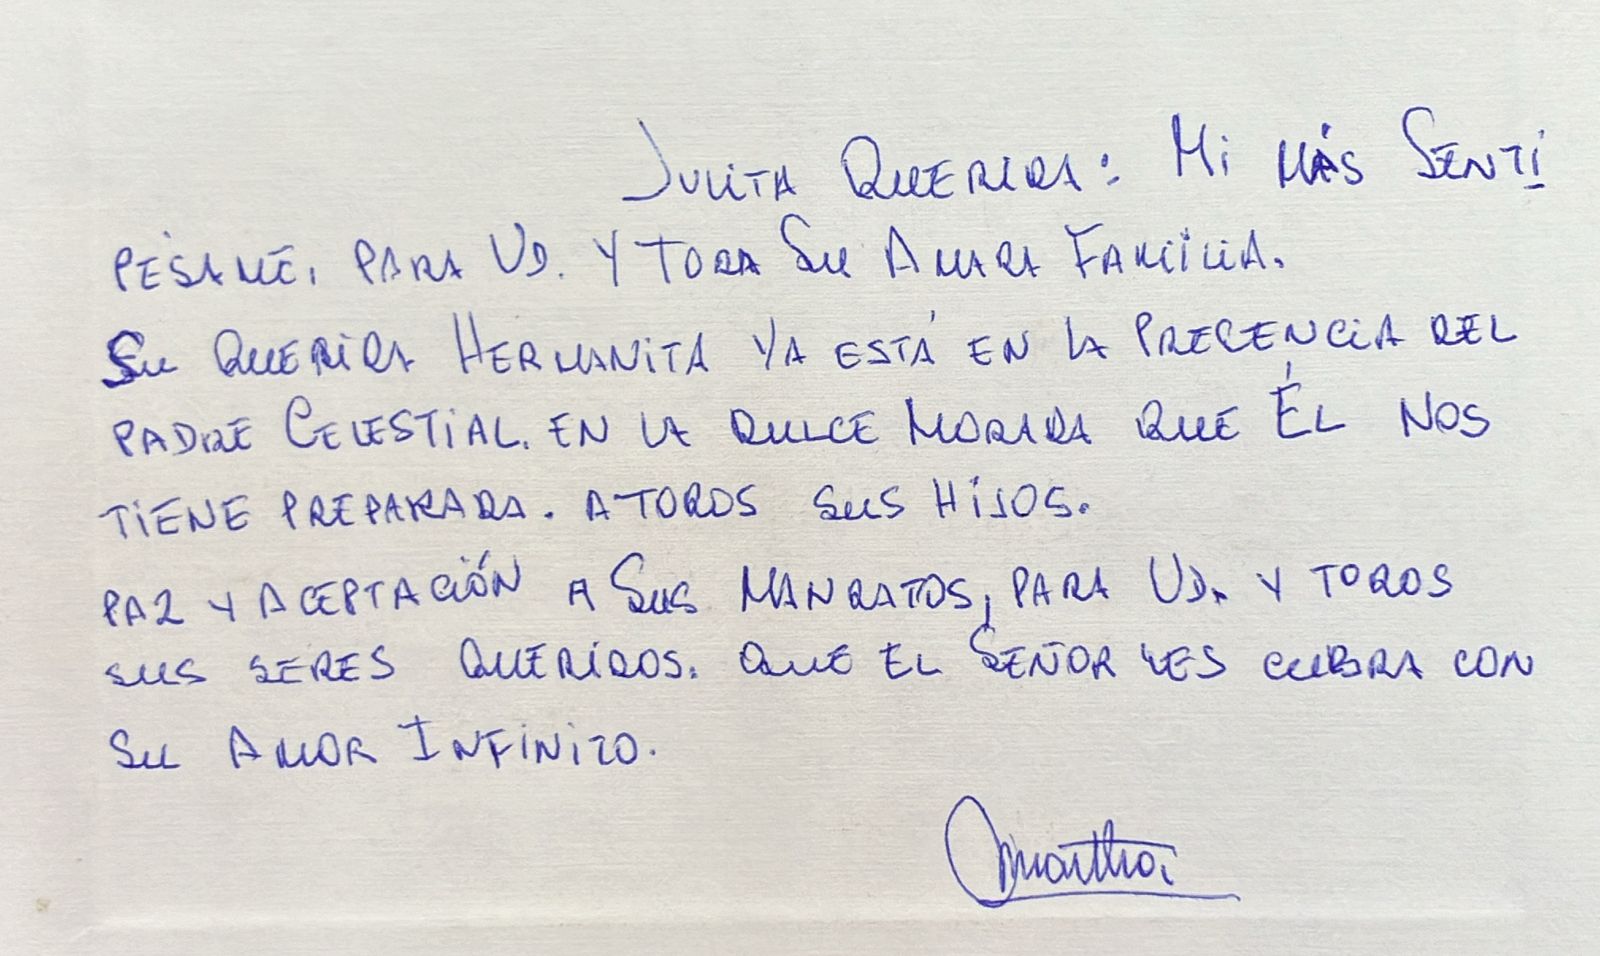 Julita Querida: Mi más Senti
pésame, para Ud. y toda Su Amada Familia.
Su Querida Hermanita ya está en la precencia del
padre Celestial. en la dulce morada que Él nos
tiene preparada. a todos sus Hijos.
paz y aceptación a Sus mandatos, para Ud. y todos
sus seres queridos. que el Señor les cubra con
Su Amor Infinito.
Martha